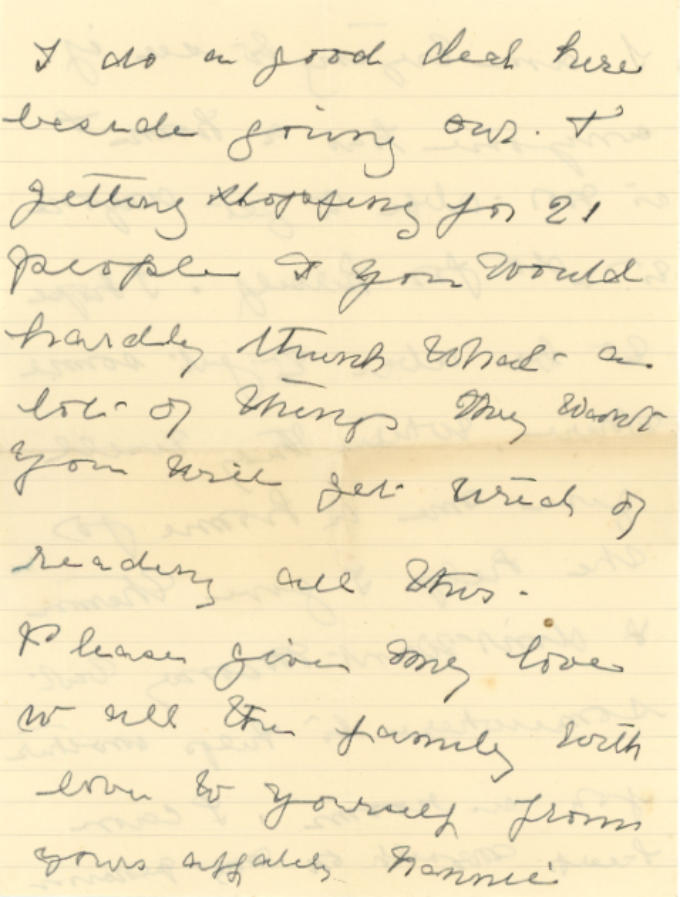 I do a good deal here
beside going out. &
getting shopping for 21
people & you would
hardly think what a
lot of things they want
you will get tired of
reading all this.
Please give my love
to all the family with
love to yourself from
yours affately Nannie